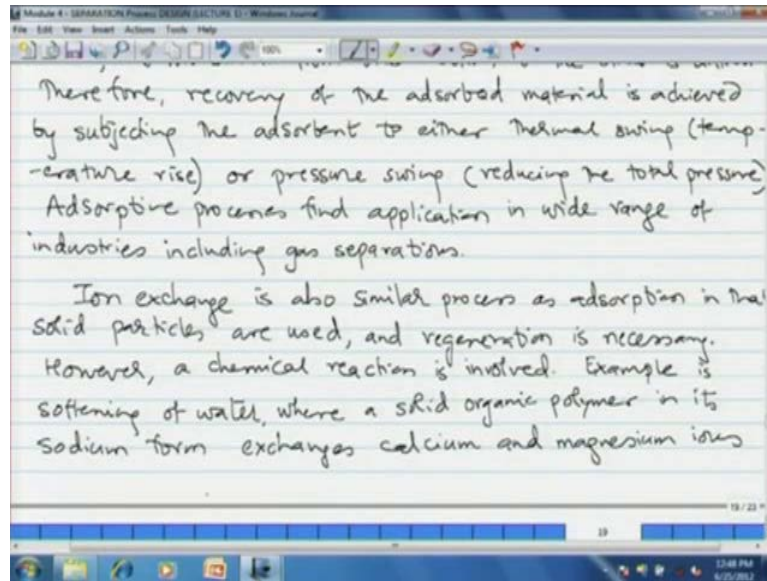 Module 4 - SEPARATION Process DESIGN (LECTURE 1) - Windows Journal
File Edit View Insert Actions Tools Help
100%
Therefore, recovery of the adsorbed material is achieved
by subjecting the adsorbent to either thermal swing (temp-
-erature rise) or pressure swing (reducing the total pressure)
Adsorptive processes find application in wide range of
industries including gas separations.
Ion exchange is also similar process as adsorption in that
solid particles are used, and regeneration is necessary.
However, a chemical reaction is involved. Example is
softening of water, where a solid organic polymer in its
sodium form exchanges calcium and magnesium ions
19 / 23
19
12:48 PM
6/25/2012